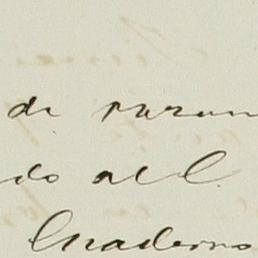 de razon
do al C.
Cuaderno